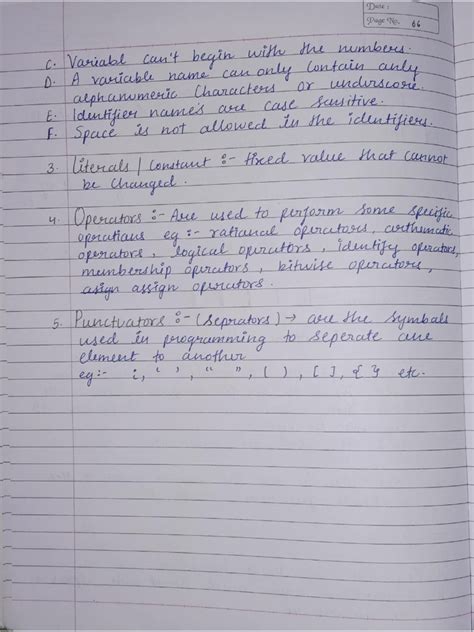 Date :
Page No. 66
C. Variabl can't begin with the numbers.
D. A variable name can only contain only
alphanumeric characters or underscore.
E. Identifier name's are case sensitive.
F. Space is not allowed in the identifiers.
3. Literals / Constant :- fixed value that cannot
be changed.
4. Operators :- Are used to perform some specific
operations eg :- rational operators, arthematic
operators, logical operators, identify operators,
membership operators, bitwise operators,
asign assign operators.
5. Punctuators :- (Seprators) → are the symbols
used in programming to seperate one
element to another
eg:- ;, ‘ ’, “ ”, ( ), [ ], { } etc.